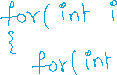 for( int i
{
for( int